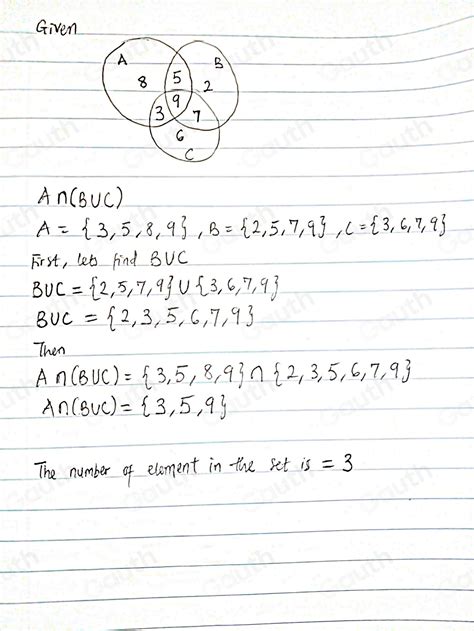 Given
A
B
8
5
2
9
3
7
6
C
A∩(B∪C)
A = {3,5,8,9}, B={2,5,7,9}, C={3,6,7,9}
First, lets find B∪C
B∪C = {2,5,7,9} ∪ {3,6,7,9}
B∪C = {2,3,5,6,7,9}
Then
A∩(B∪C) = {3,5,8,9} ∩ {2,3,5,6,7,9}
A∩(B∪C) = {3,5,9}
The number of element in the set is = 3
Gauth